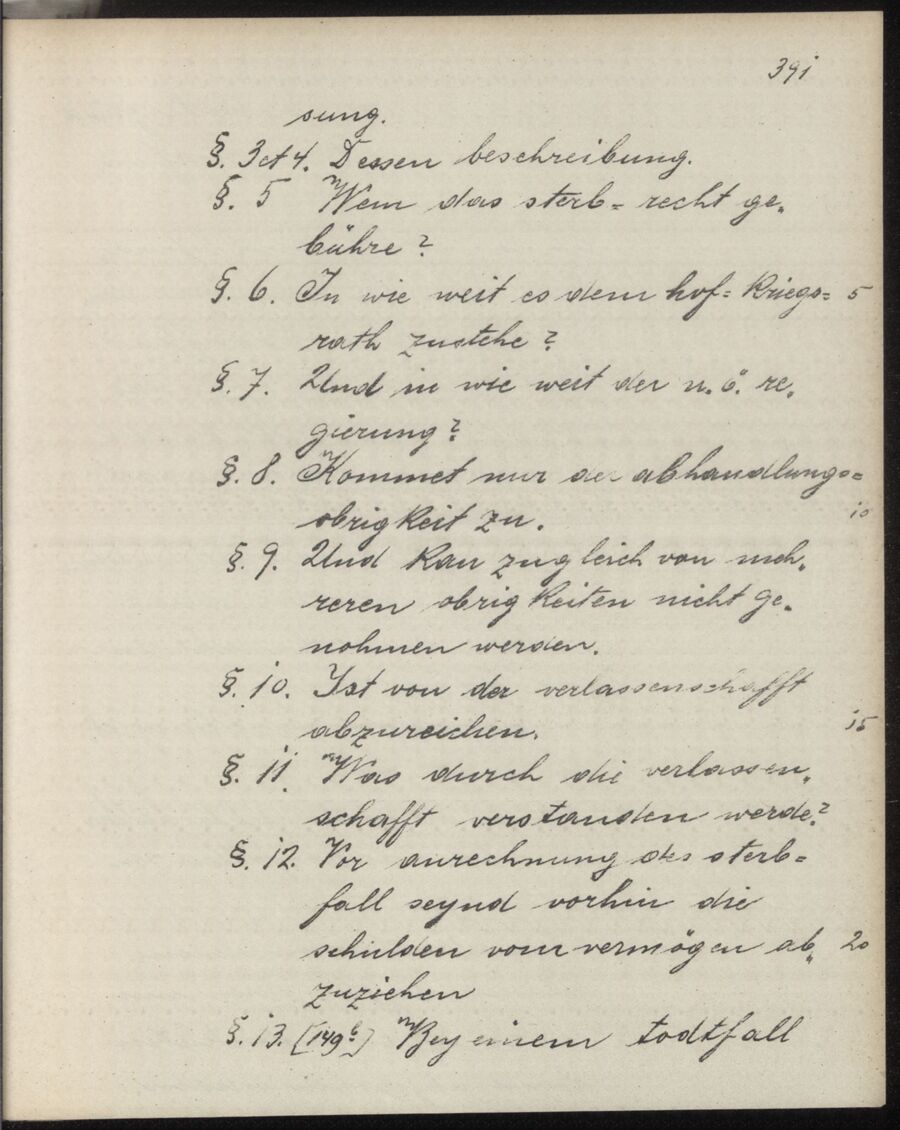 391
sung.
§. 3 et 4. Dessen beschreibung.
§. 5 Wem das sterb= recht ge„
bühre?
§. 6. In wie weit es dem hof= kriegs= 5
rath zustehe?
§. 7. Und in wie weit der n. ö. re„
gierung?
§. 8. Kommet nur der abhandlungs=
obrigkeit zu. 10
§. 9. Und kan zugleich von meh„
reren obrigkeiten nicht ge„
nohmen werden.
§. 10. Ist von der verlassenschafft
abzureichen. 15
§. 11. Was durch die verlassen„
schafft verstanden werde?
§. 12. Vor anrechnung des sterb=
fall seynd vorhin die
schulden vom vermögen ab„ 20
zuziehen
§. 13. [149b] Bey einem todtfall